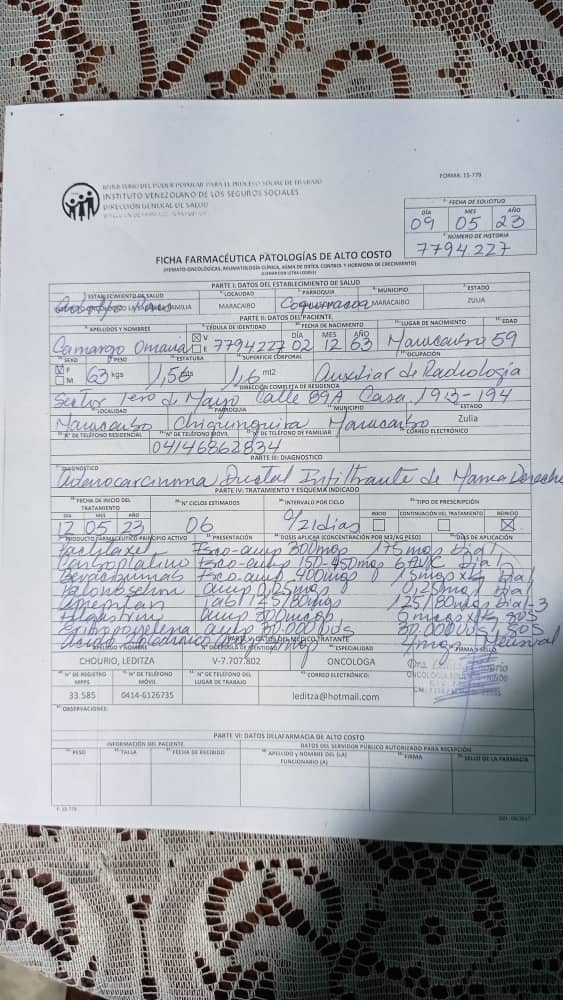 FORMA: 15-779
MINISTERIO DEL PODER POPULAR PARA EL PROCESO SOCIAL DE TRABAJO
INSTITUTO VENEZOLANO DE LOS SEGUROS SOCIALES
DIRECCIÓN GENERAL DE SALUD
FECHA DE SOLICITUD
DÍA MES AÑO
09 05 23
NUMERO DE HISTORIA
7794227
FICHA FARMACÉUTICA PATOLOGÍAS DE ALTO COSTO
(HEMATO-ONCOLÓGICAS, REUMATOLOGÍA CLÍNICA, ASMA DE DIFICIL CONTROL Y HORMONA DE CRECIMIENTO)
(LLENAR CON LETRA LEGIBLE)
PARTE I: DATOS DEL ESTABLECIMIENTO DE SALUD
ESTABLECIMIENTO DE SALUD LOCALIDAD PARROQUIA MUNICIPIO ESTADO
MARACAIBO MARACAIBO ZULIA
PARTE II: DATOS DEL PACIENTE
APELLIDOS Y NOMBRES CÉDULA DE IDENTIDAD FECHA DE NACIMIENTO LUGAR DE NACIMIENTO EDAD
DÍA MES AÑO
Camargo Omaira V E 7794227 02 12 63 Maracaibo 59
SEXO PESO ESTATURA SUPERFICIE CORPORAL OCUPACIÓN
F M 63 kgs 1,56 mts 1,6 mt2 Auxiliar de Radiología
DIRECCIÓN COMPLETA DE RESIDENCIA
Sector 1ero de Mayo Calle 89A Casa 19D-194
LOCALIDAD PARROQUIA MUNICIPIO ESTADO
Maracaibo Chiquinquira Maracaibo Zulia
N° DE TELÉFONO RESIDENCIAL N° DE TELÉFONO MÓVIL N° DE TELÉFONO DE FAMILIAR CORREO ELECTRÓNICO
04146862834
PARTE III: DIAGNOSTICO
DIAGNÓSTICO
Adenocarcinoma Ductal Infiltrante de Mama Derecha
PARTE IV: TRATAMIENTO Y ESQUEMA INDICADO
FECHA DE INICIO DEL TRATAMIENTO N° CICLOS ESTIMADOS INTERVALO POR CICLO TIPO DE PRESCRIPCIÓN
DÍA MES AÑO INICIO CONTINUACIÓN DEL TRATAMIENTO REINICIO
12 05 23 06 c/21 dias
PRODUCTO FARMACÉUTICO PRINCIPIO ACTIVO PRESENTACIÓN DOSIS APLICAR (CONCENTRACIÓN POR M2/KG PESO) DÍAS DE APLICACIÓN
Paclitaxel Fsco-amp 300mgs 175 mgs Dia 1
Carboplatino Fsco-amp 150-450mgs 6 AUC Dia 1
Bevacizumab Fsco-amp 400mgs 15mgs x kg Dia 1
Palonosetron amp 0,25mgs 0,25mgs Dia 1
Aprepitan Tabl 125/80mgs 125/80mgs Dia 1-3
Filgastrin amp 300mcgs
Eritropoyetina amp
Mensual
PARTE V: DATOS DEL MÉDICO TRATANTE
APELLIDO Y NOMBRE N° DE CÉDULA DE IDENTIDAD ESPECIALIDAD FIRMA Y SELLO
CHOURIO, LEDITZA V-7.707.802 ONCOLOGA
N° DE REGISTRO MPPS N° DE TELÉFONO MÓVIL N° DE TELÉFONO DEL LUGAR DE TRABAJO CORREO ELECTRÓNICO:
33.585 0414-6126735 leditza@hotmail.com
OBSERVACIONES:
PARTE VI: DATOS DE LA FARMACIA DE ALTO COSTO
INFORMACIÓN DEL PACIENTE DATOS DEL SERVIDOR PÚBLICO AUTORIZADO PARA RECEPCIÓN
PESO TALLA FECHA DE RECIBIDO APELLIDO y NOMBRE DEL (LA) FUNCIONARIO (A) FIRMA SELLO DE LA FARMACIA